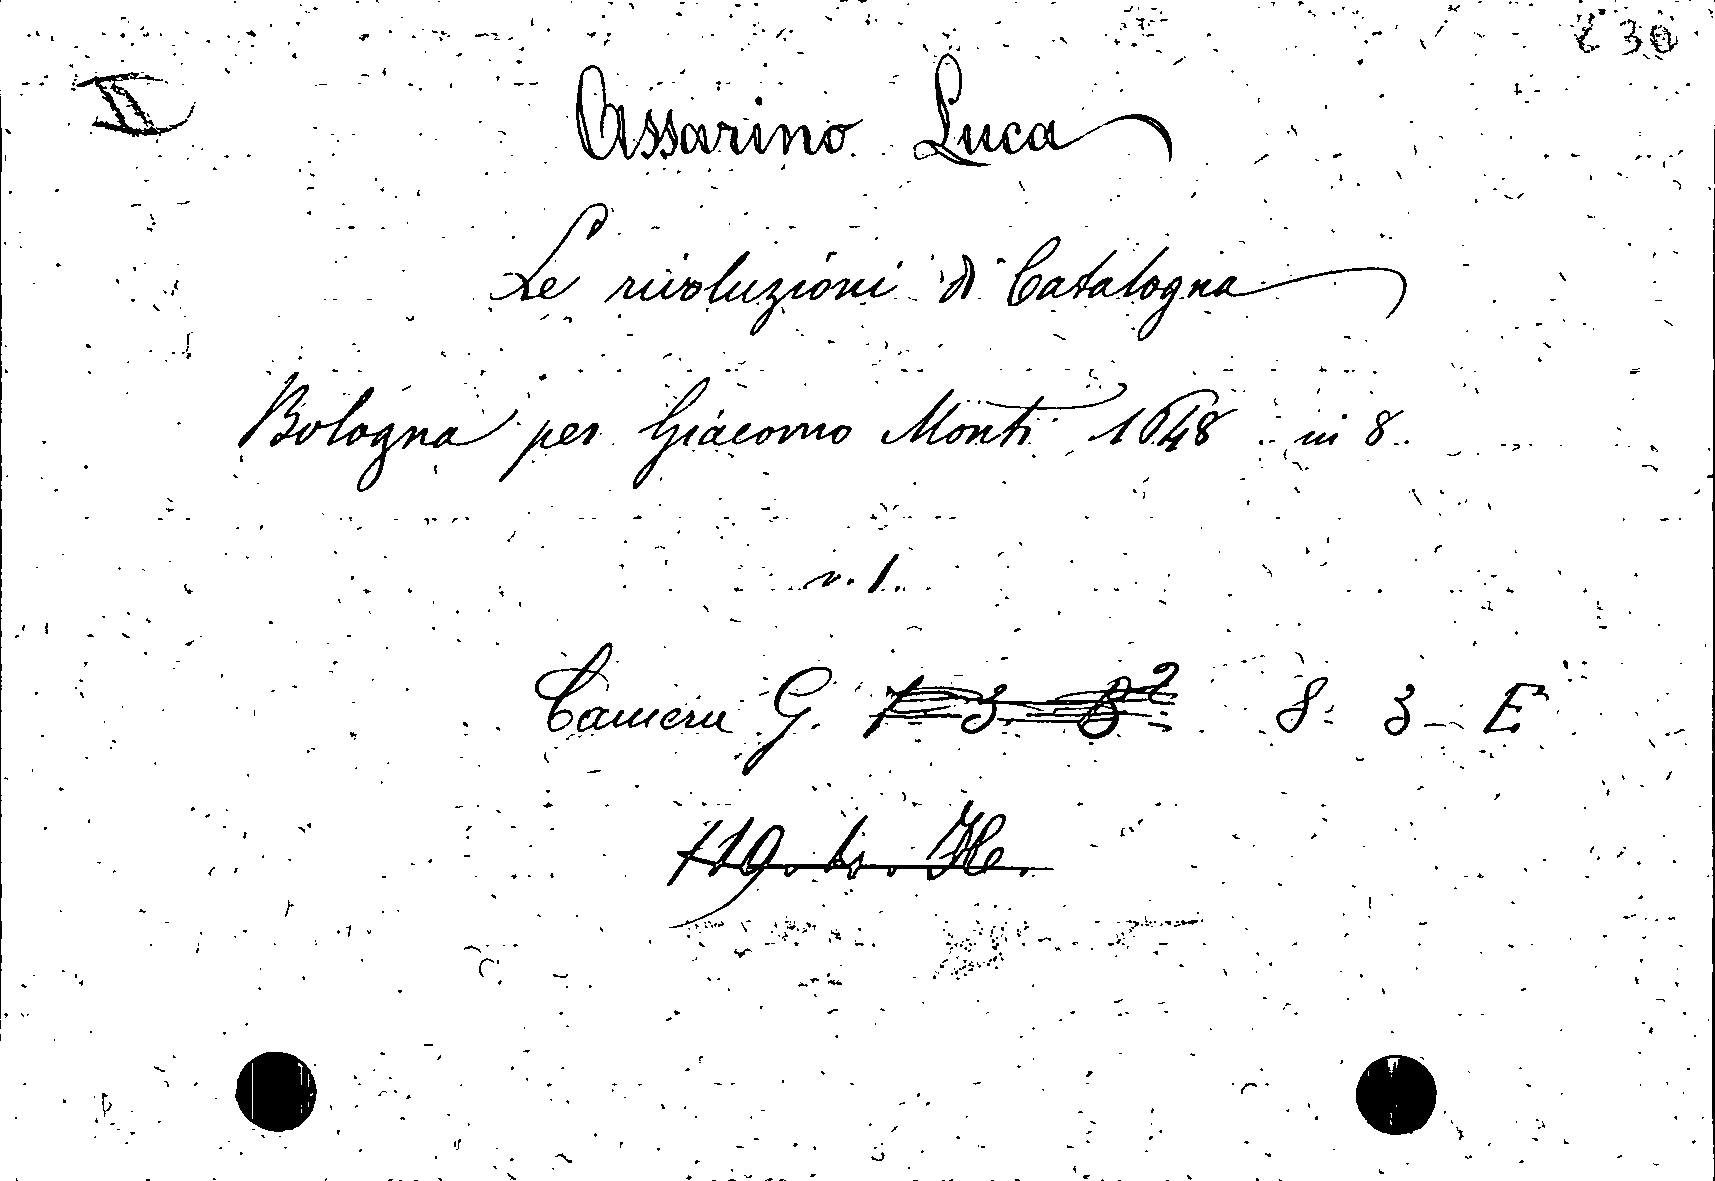 II
£ 30
Assarino Luca
Le rivoluzioni di Catalogna
Bologna per Giacomo Monti 1648 in 8.
v. 1.
Camera G. 8. 3 - E
119. b. H.